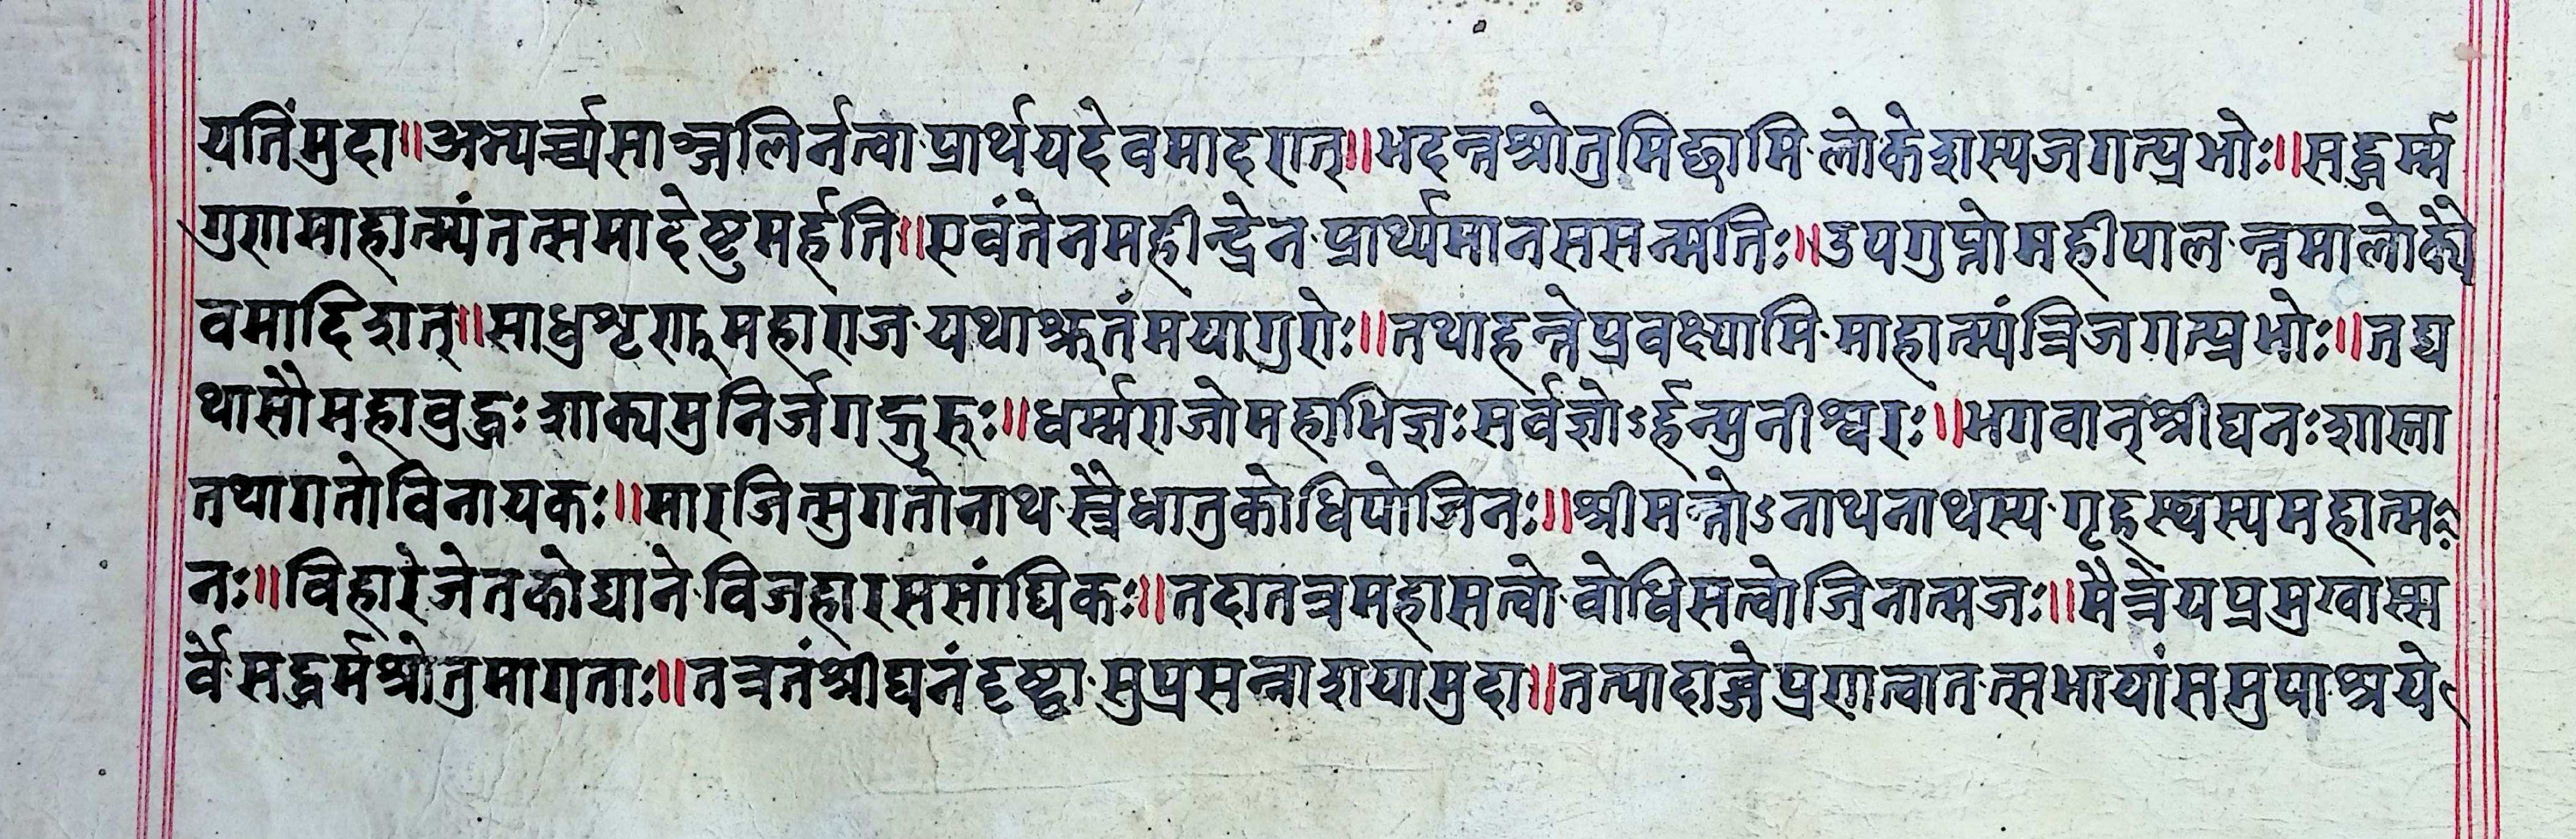 यतिंमुदा॥अभ्यर्च्च्यसाञ्जलिर्नत्वा·प्रार्थयदेवमादरात्॥भदन्तश्रोतुमिछामि·लोकेशस्यजगत्प्रभोः॥सद्धर्म्म
गुणमाहात्म्यंतत्समादेष्टुमर्हति॥एवंतेनमहीन्द्रेन·प्रार्थ्यमानससन्मतिः॥उपगुप्तोमहीपाल·न्तमालोक्यै
वमादिशत्॥साधुशृणुमहाराज·यथाश्रुतंमयागुरोः॥तथाहन्तेप्रवक्ष्यामि·माहात्म्यंत्रिजगत्प्रभोः॥तद्य
थासौमहाबुद्धः·शाक्यमुनिर्जगद्गुरुः॥धर्म्मराजोमहाभिज्ञः·सर्वज्ञोऽर्हन्मुनीश्वरः॥भगवान्श्रीघनःशास्ता
तथागतोविनायकः॥मारजित्सुगतोनाथ·स्त्रैधातुकोधिपोजिनः॥श्रीमन्तोऽनाथनाथस्य·गृहस्थस्यमहात्म
नः॥विहारेजेतकोद्याने·विजहारससांघिकः॥तदातत्रमहासत्वो·वोधिसत्वोजिनात्मजः॥मैत्रेयप्रमुखास्स
र्वे·सद्धर्मश्रोतुमागताः॥तत्रतंश्रीघनंदृष्ट्वा·सुप्रसन्नाशयामुदा॥तत्पादाब्जेप्रणत्वात·त्सभायांसमुपाश्रये